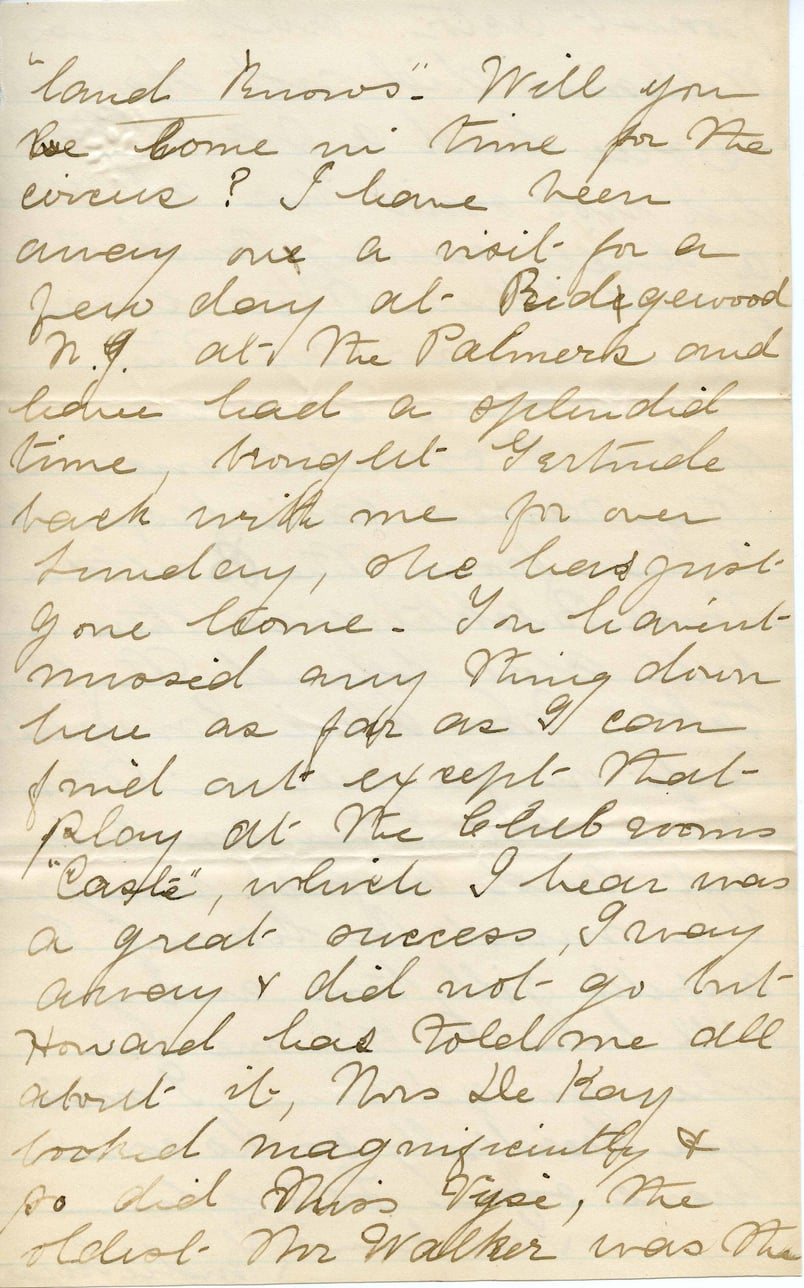 "land knows". Will you
be home in time for the
circus? I have been
away on a visit for a
few day at Ridgewood
N.J. at the Palmers and
have had a splendid
time, brought Gertrude
back with me for over
Sunday, she has just
gone home - You havin't
missed any thing down
here as far as I can
find out except that
play at the Club rooms
"Caste", which I hear was
a great success, I way
away & did not go but
Howard has told me all
about it, Mrs De Kay
looked magnificiently &
so did Miss Vyse, the
oldest Mr Walker was the